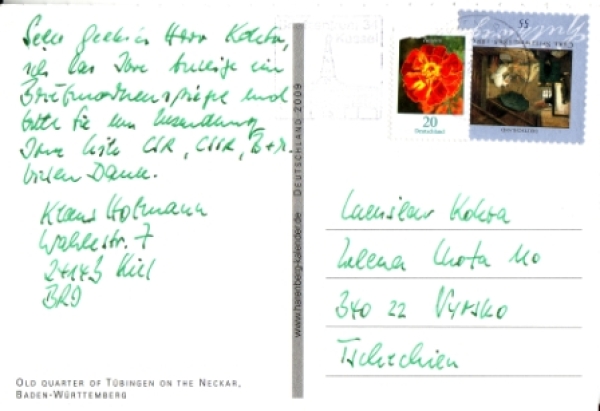 Sehr geehrter Herr Kohta,
ich las Ihre Anzeige im
Briefmarkenspiegel und
bitte Sie um Zusendung
Ihrer Liste ČSR, ČSSR, B+M.
Vielen Dank.
Klaus Hofmann
Wahlestr. 7
24143 Kiel
BRD
OLD QUARTER OF TÜBINGEN ON THE NECKAR,
BADEN-WÜRTTEMBERG
www.harenberg-kalender.de DEUTSCHLAND 2009
20
Deutschland
55
Ladislav Kohta
Zelena Lhota 110
340 22 Nyrsko
Tschechien